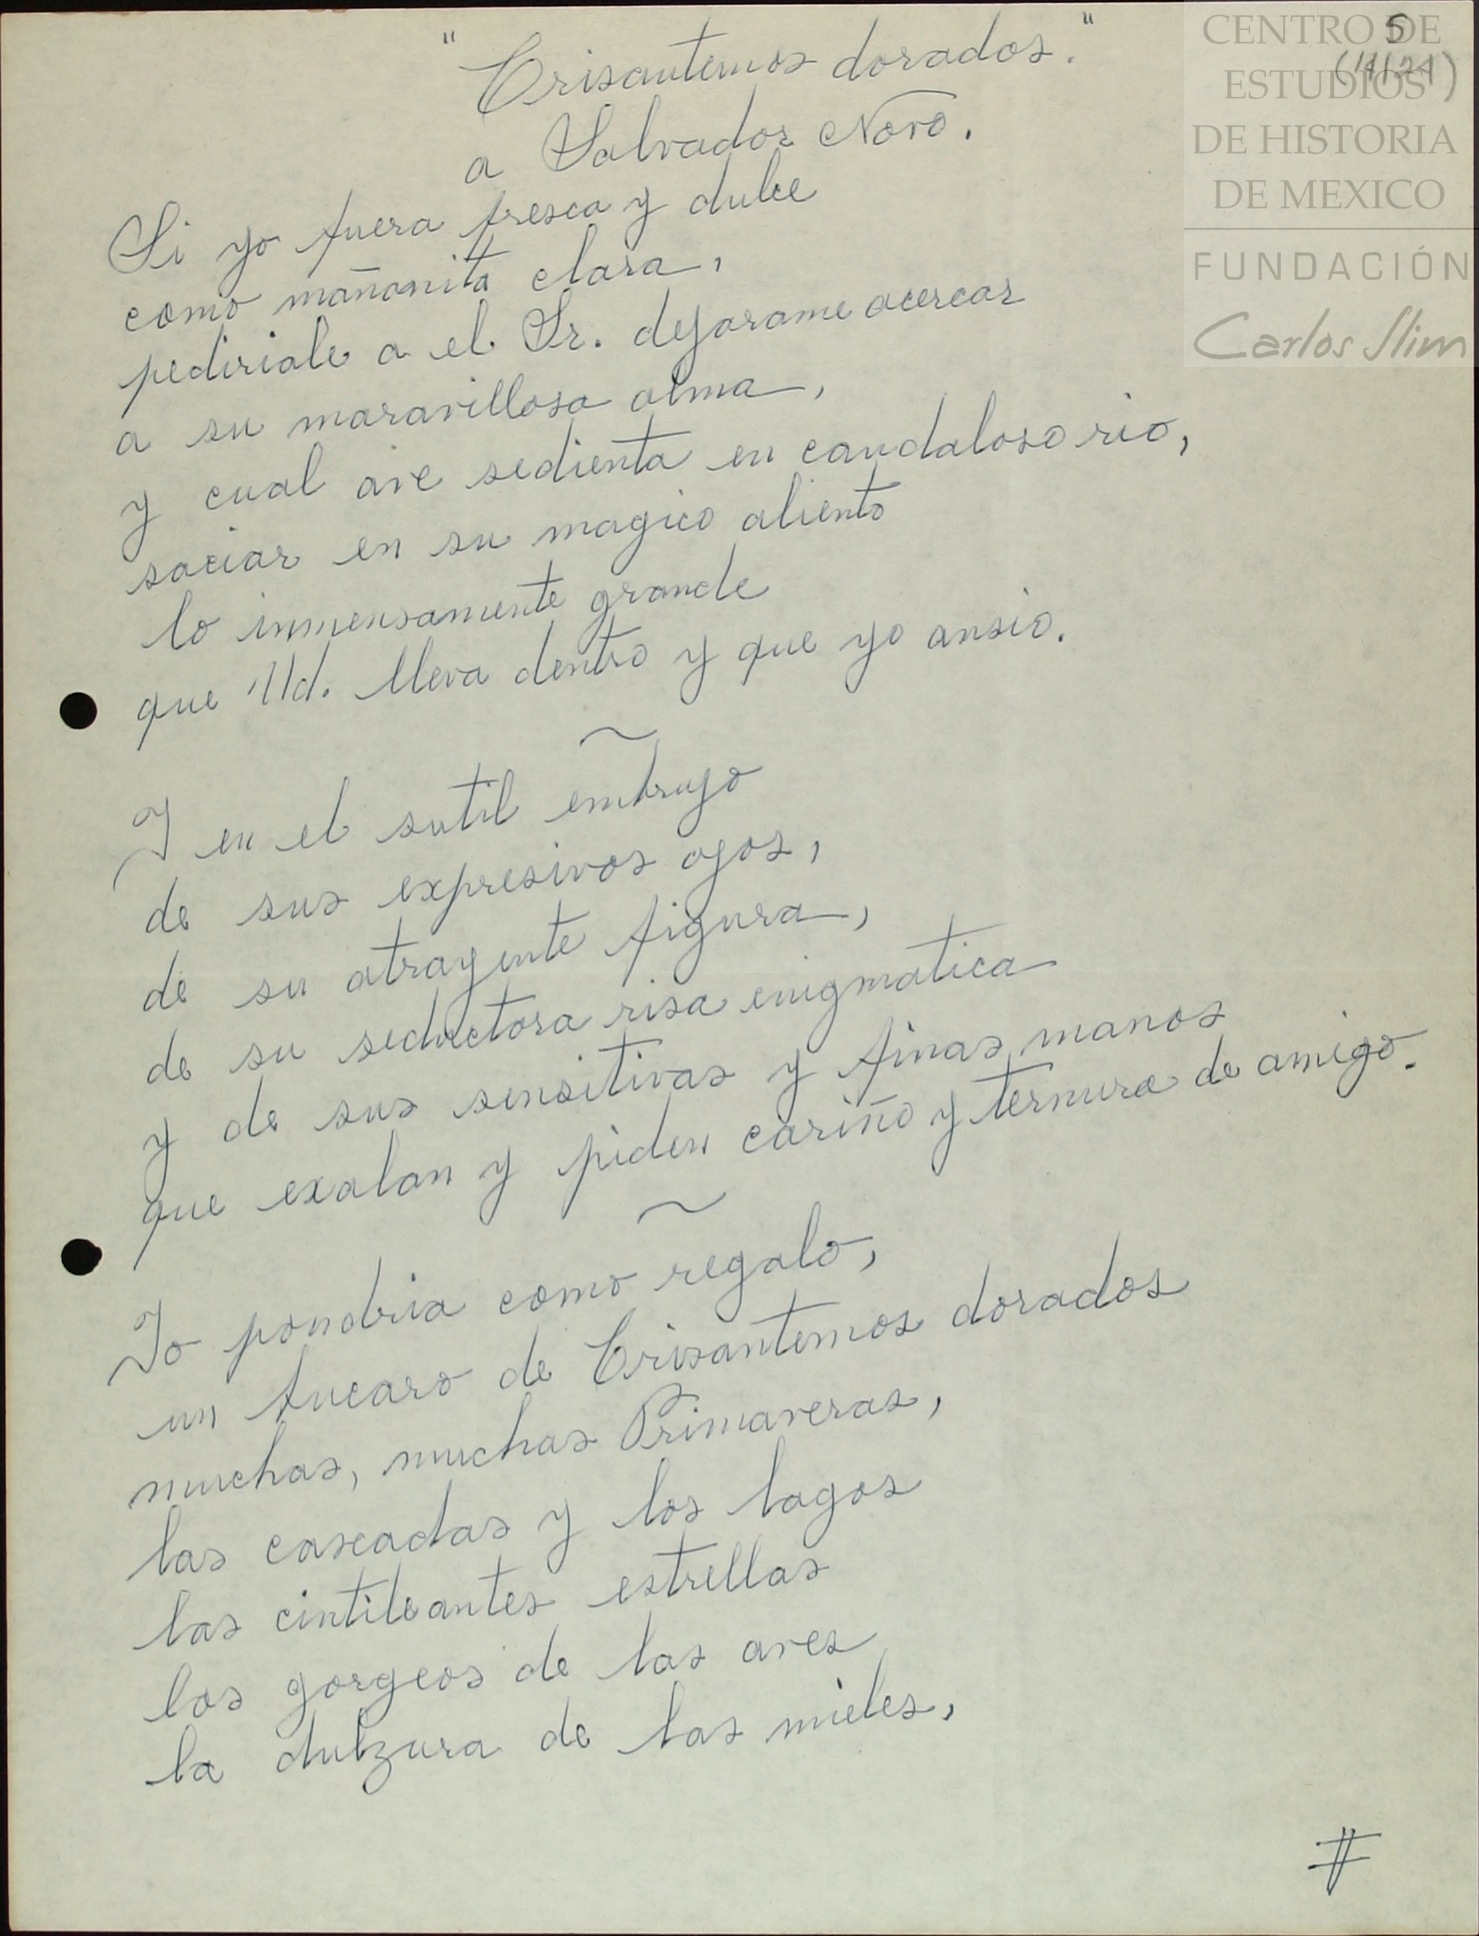 5
(14/24)
CENTRO DE
ESTUDIOS
DE HISTORIA
DE MEXICO
FUNDACIÓN
Carlos Slim
"Crisantemos dorados."
a Salvador Novo.
Si yo fuera fresca y dulce
como mañanita clara,
pediriale a el Sr. dejarame acercar
a su maravillosa alma,
y cual ave sedienta en caudaloso rio,
saciar en su magico aliento
lo inmensamente grande
que Ud. lleva dentro y que yo ansio.
~
Y en el sutil embrujo
de sus expresivos ojos,
de su atrayente figura,
de su seductora risa enigmatica
y de sus sensitivas y finas manos
que exalan y piden cariño y ternura de amigo.
~
Yo pondria como regalo,
un bucaro de Crisantemos dorados
muchas, muchas Primaveras,
las cascadas y los lagos
las cintileantes estrellas
los gorgeos de las aves
la dulzura de las mieles,
#